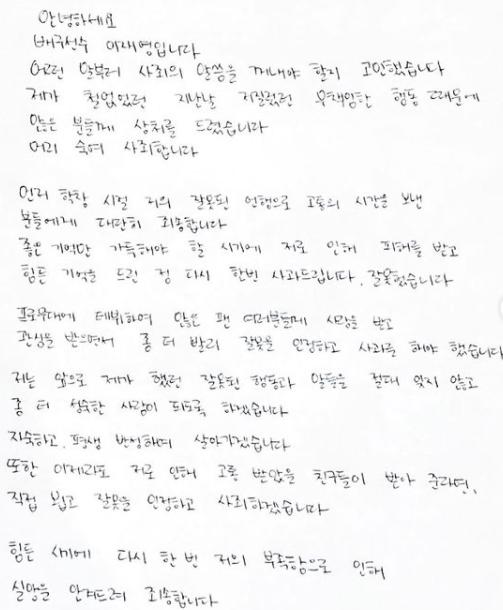 안녕하세요
배구선수 이재영입니다
어떤 말부터 사죄의 말씀을 꺼내야 할지 고민했습니다
제가 철없었던 지난날 저질렀던 무책임한 행동 때문에
많은 분들께 상처를 드렸습니다
머리 숙여 사죄합니다
먼저 학창 시절 저의 잘못된 언행으로 고통의 시간을 보낸
분들에게 대단히 죄송합니다
좋은 기억만 가득해야 할 시기에 저로 인해 피해를 받고
힘든 기억을 드린 점 다시 한번 사과드립니다. 잘못했습니다
프로무대에 데뷔하여 많은 팬 여러분들께 사랑을 받고
관심을 받으면서 좀 더 빨리 잘못을 인정하고 사과를 해야 했습니다
저는 앞으로 제가 했던 잘못된 행동과 말들을 절대 잊지 않고
좀 더 성숙한 사람이 되도록 하겠습니다
자숙하고. 평생 반성하며 살아가겠습니다
또한 이제라도 저로 인해 고통 받았을 친구들이 받아 준다면,
직접 뵙고 잘못을 인정하고 사죄하겠습니다
힘든 시기에 다시 한 번 저의 부족함으로 인해
실망을 안겨드려 죄송합니다